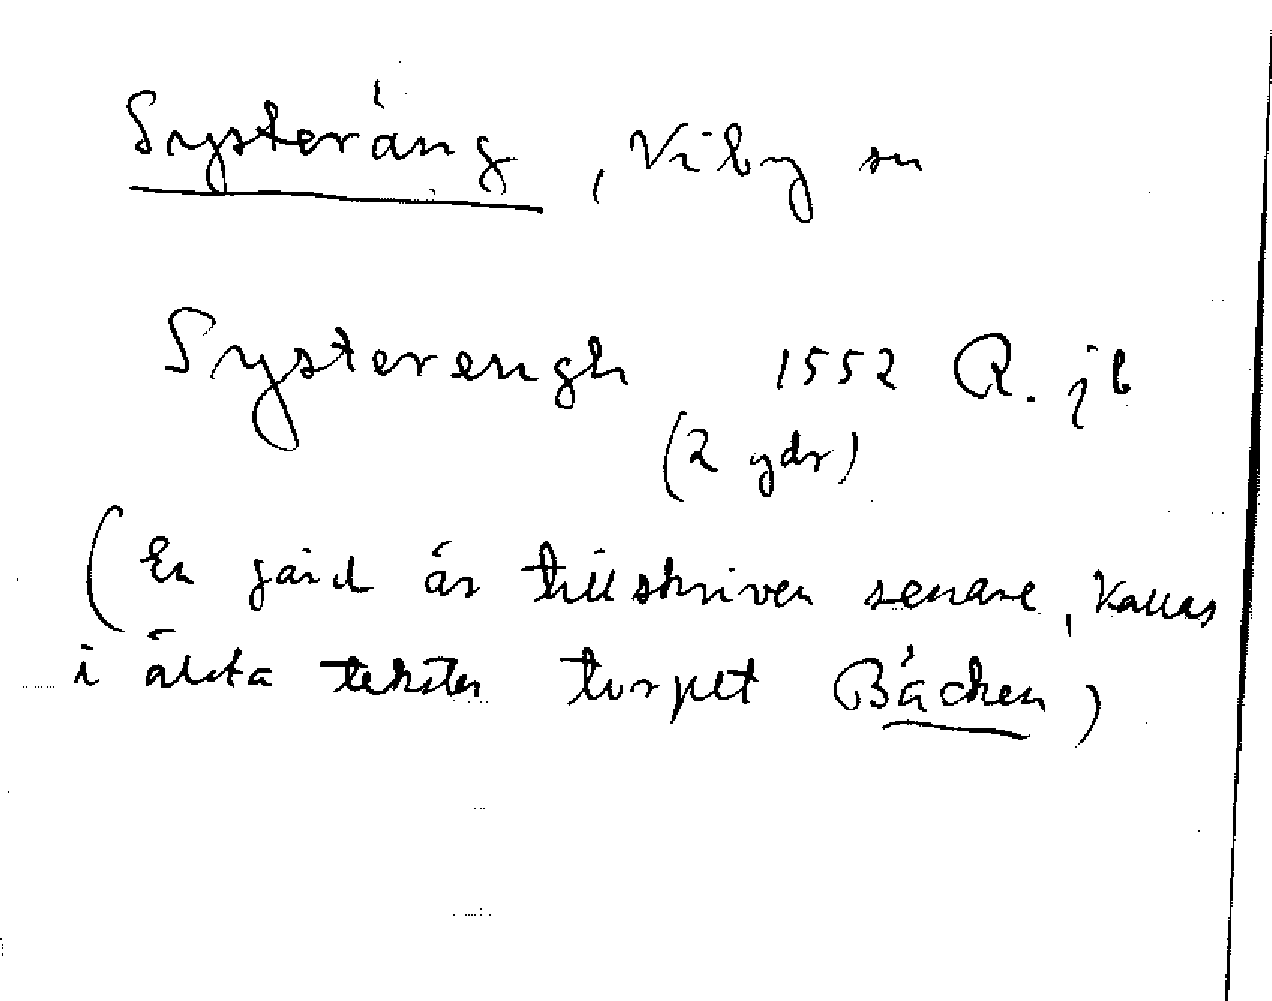 Systeräng, Viby sn
Systerengh 1552 R. jb
(2 gdr)
(En gård är tillskriven senare, kallas
i älsta teksten torpet Bäcken)